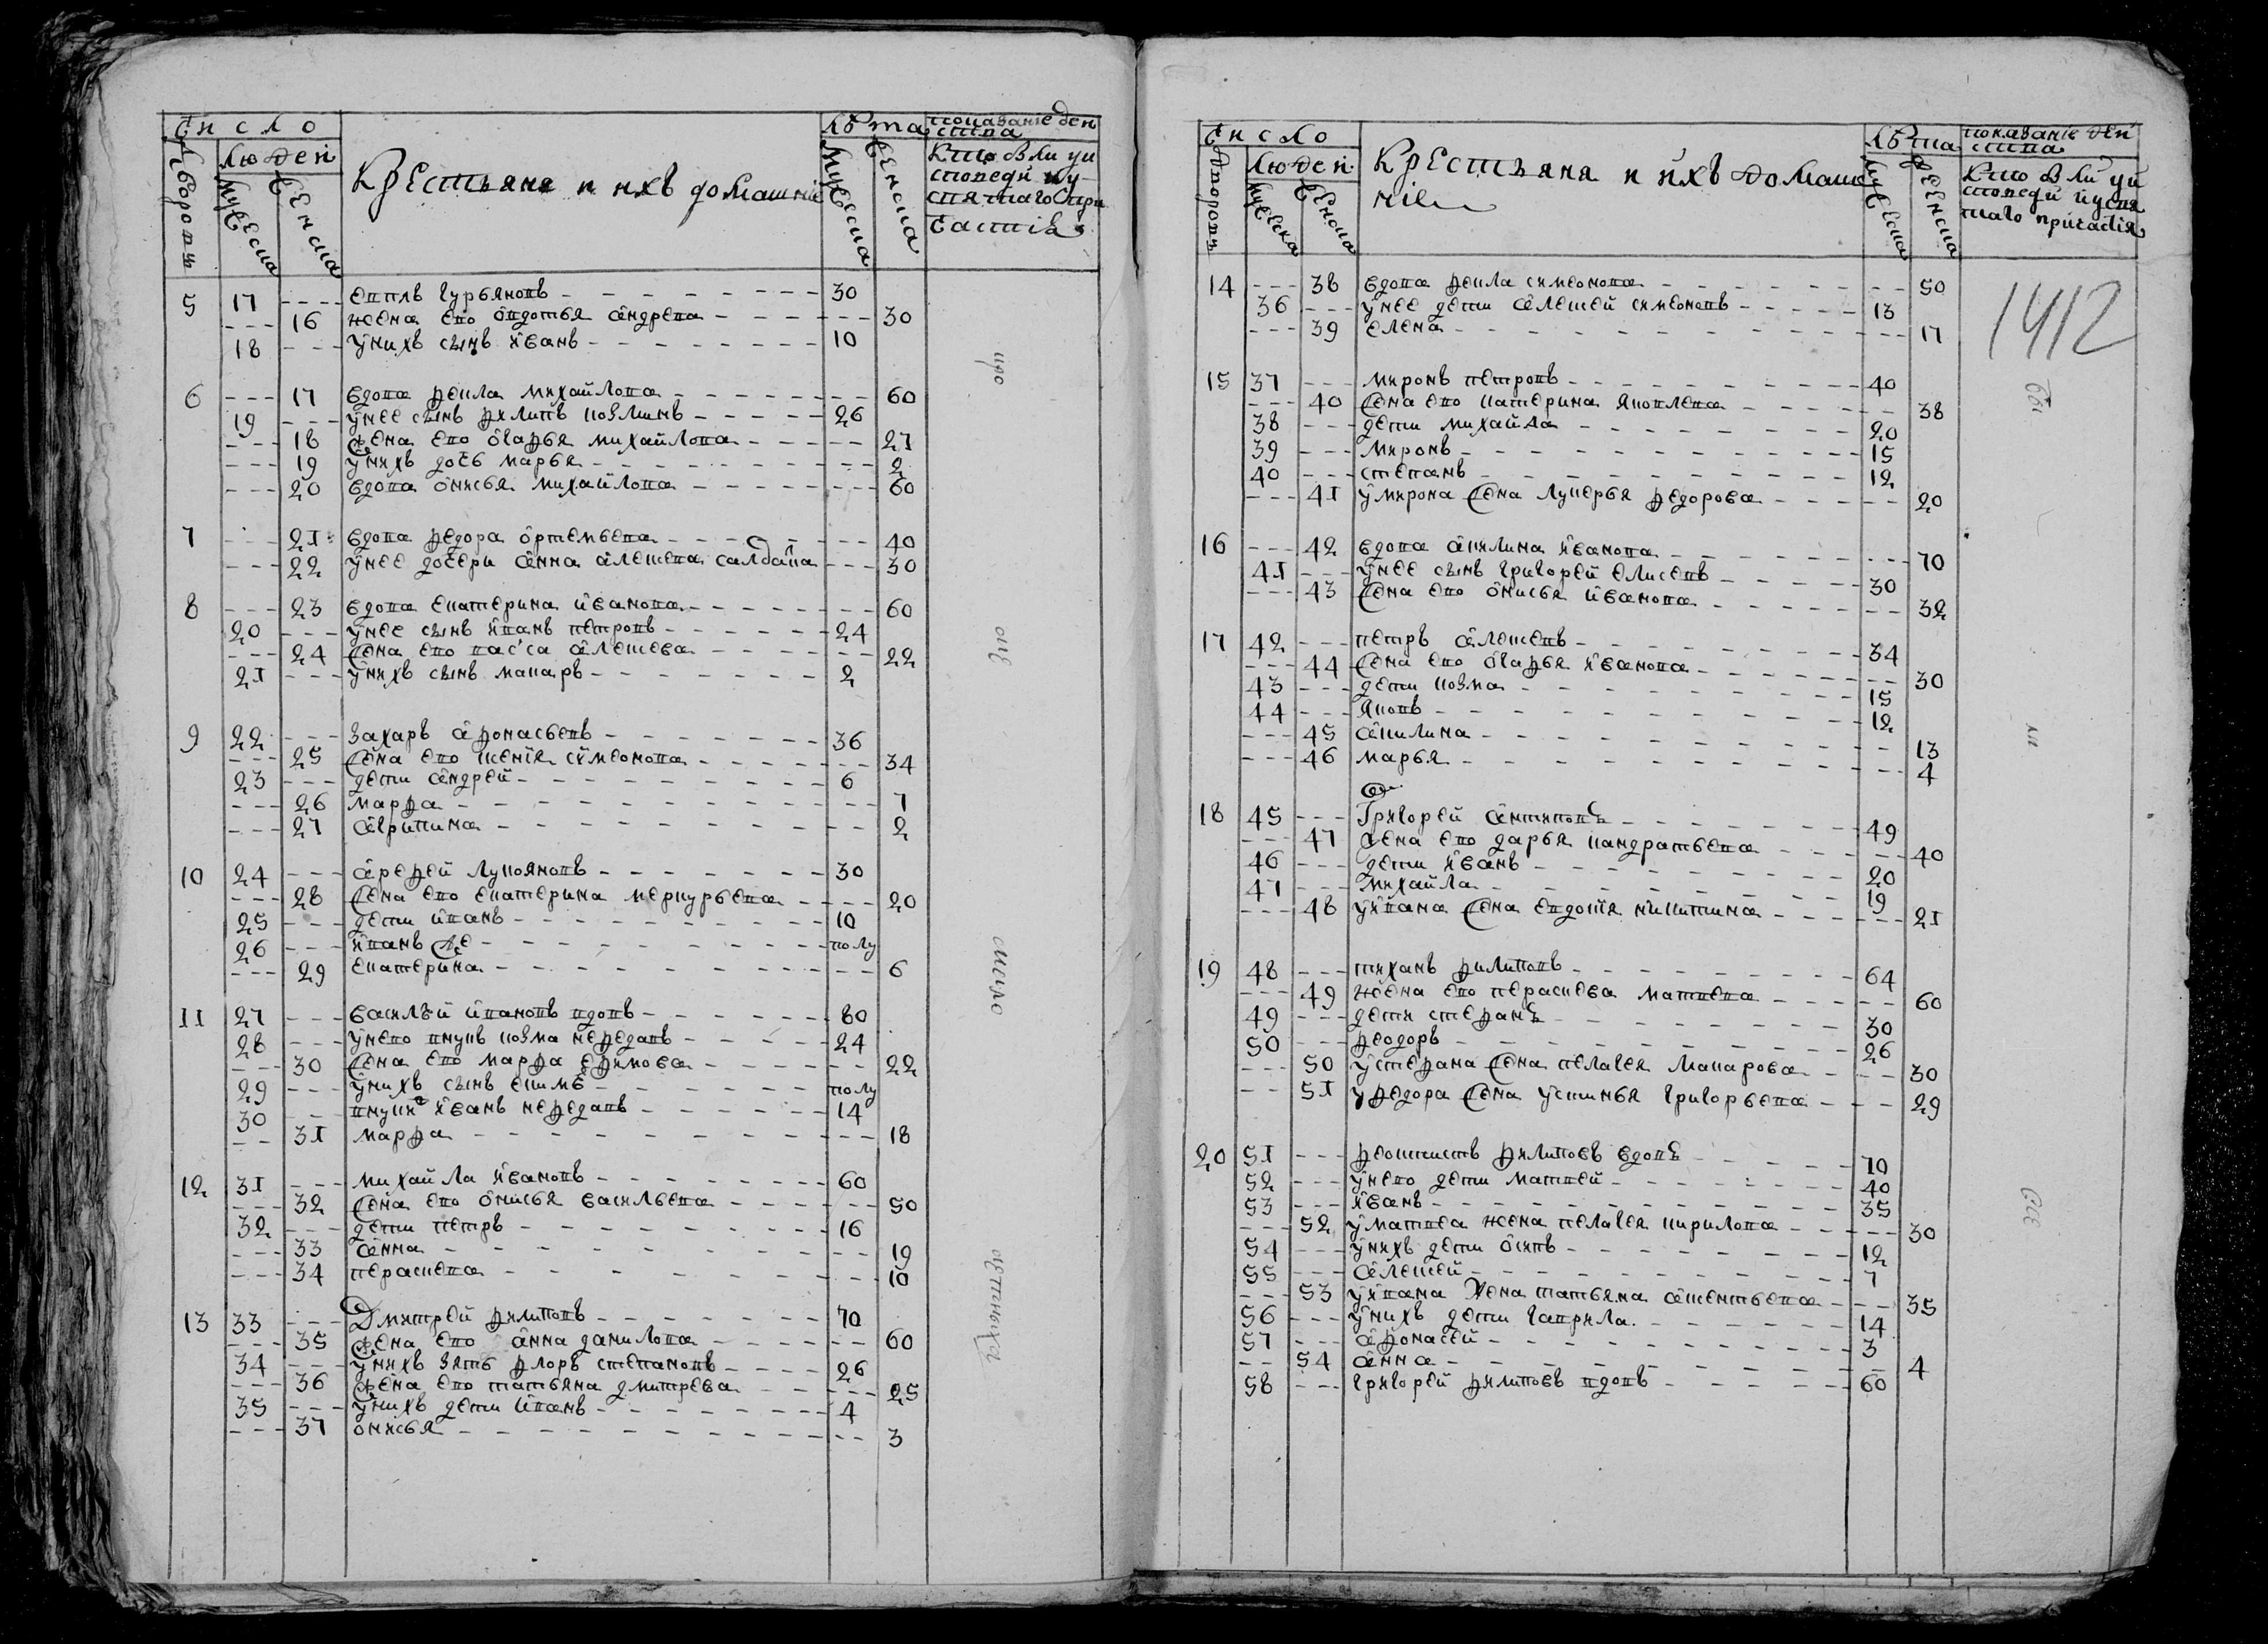 Число
лѣта
показанiе действа
дворовъ
людей
мужеска
женска
Крестьяня и ихъ домашнiе
мужеска
женска
кто были уисповеди иу святаго причастiя
5 17 --- евтпвъ гурьяновъ 30
--- 16 жена ево овдотья андрева 30
18 --- унихъ сынъ иванъ 10
6 --- 17 вдова фекла михайлова 60
19 --- унее сынъ филипъ козминъ 26
--- 18 жена ево огафья михайлова 27
--- 19 унихъ дочь марья 2
--- 20 вдова онисья михайлова 60
7 --- 21 вдова федора ортемьева 40
--- 22 унее дочери анна алексева салдацка 30
8 --- 23 вдова екатерина иванова 60
20 --- унее сынъ иванъ петровъ 24
--- 24 жена ево васса алексева 22
21 --- унихъ сынъ макаръ 2
9 22 --- захаръ афонасьевъ 36
--- 25 жена ево ксенiя симеонова 34
23 --- дети андрей 6
--- 26 марфа 7
--- 27 агрипина 2
10 24 --- арефей лукояновъ 30
--- 28 жена ево екатерина меркурьева 20
25 --- дети иванъ 10
26 --- иванъ же полу
--- 29 екатерина 6
11 27 --- василъй ивановъ вдовъ 80
28 --- унево внукъ козма нефедовъ 24
--- 30 жена ево марфа ефимова 22
29 --- унихъ сынъ екимъ полу
30 --- внуки иванъ нефедовъ 14
--- 31 марфа 18
12 31 --- михайла ивановъ 60
--- 32 жена ево онисья васильева 50
32 --- дети петръ 16
--- 33 анна 19
--- 34 параскева 10
13 33 --- Дмитрей филиповъ 70
--- 35 жена ево анна данилова 60
34 --- унихъ зять флоръ степановъ 26
--- 36 жена ево татьяна дмитрева 25
35 --- унихъ дети иванъ 4
--- 37 онисья 3
Число
лѣта
показанiе действа
дворовъ
людей
мужеска
женска
Крестьяня и ихъ домашнiе
мужеска
женска
кто были уисповеди иусвятаго причастiя
1412
14 --- 38 вдова фекла симеонова 50
36 --- унее дети алексей симеоновъ 13
--- 39 елена 17
15 37 --- миронъ петровъ 40
--- 40 жена ево катерина яковлева 38
38 --- дети михайла 20
39 --- миронъ 15
40 --- степанъ 12
--- 41 умирона жена лукерья федорова 20
16 --- 42 вдова акилина иванова 70
41 --- унее сынъ григорей елисевъ 30
--- 43 жена ево онисья иванова 32
17 42 --- петръ алексевъ 34
--- 44 жена ево огафья иванова 30
43 --- дети козма 15
44 --- яковъ 12
--- 45 акилина 13
--- 46 марья 4
18 45 --- Григорей антиповъ 49
--- 47 жена ево дарья кандратьева 40
46 --- дети иванъ 20
47 --- михайла 19
--- 48 уивана жена евдотiя никитина 21
19 48 --- тиханъ филиповъ 64
--- 49 жена ево параскева матвева 60
49 --- дети стефанъ 30
50 --- феодоръ 26
--- 50 устефана жена пелагея макарова 30
--- 51 уфедора жена устинья григорьева 29
20 51 --- феоктистъ филиповъ вдовъ 70
52 --- унево дети матвей 40
53 --- иванъ 35
--- 52 уматвеа жена пелагея кирилова 30
54 --- унихъ дети осипъ 12
55 --- алексей 7
--- 53 уивана жена татьяна аксентьева 35
56 --- унихъ дети гаврила 14
57 --- афонасей 3
--- 54 анна 4
58 --- григорей филиповъ вдовъ 60